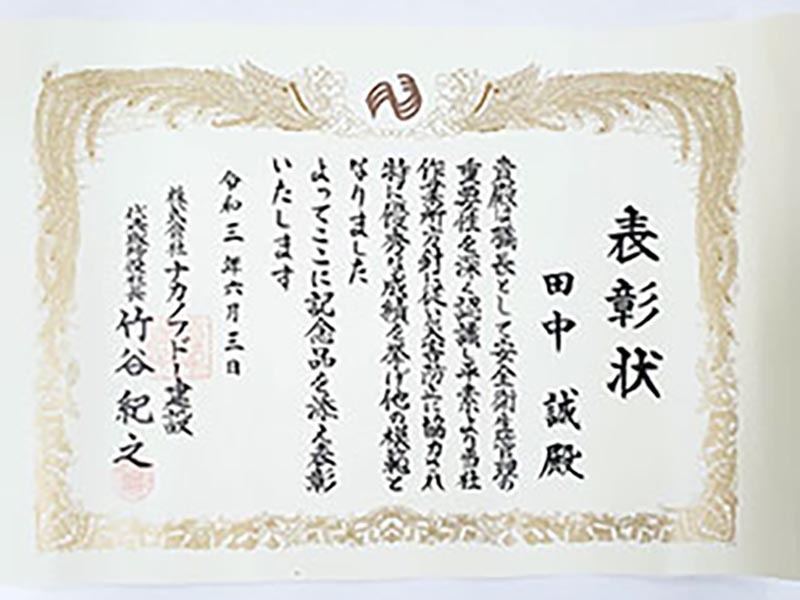 表彰状
田中 誠殿
貴殿は職長として安全衛生管理の
重要性を深く認識し平素より当社
作業所方針に従い災害防止に協力され
特に優秀な成績を挙げ他の模範と
なりました
よってここに記念品を添え表彰
いたします
令和三年六月三日
株式会社ナカノフドー建設
代表取締役社長 竹谷紀之